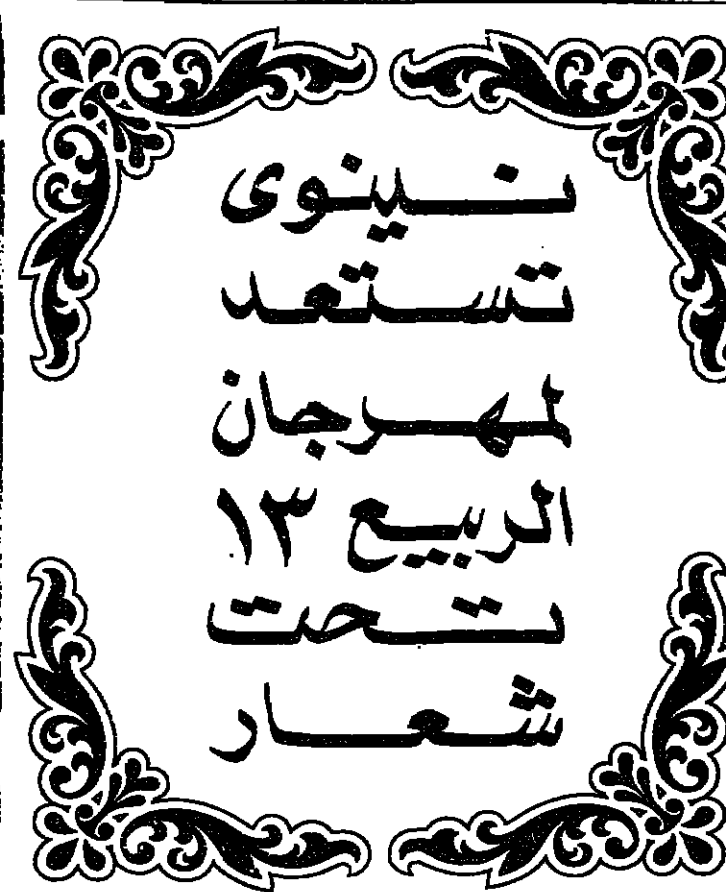 نينوى
تستعد
لمهرجان
الربيع ١٣
تحت
شعار